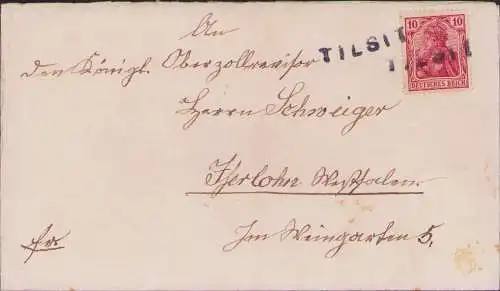 An
TILSIT
TILSIT
10 10
DEUTSCHES REICH
den Königl. Oberzollrevisor
Herrn Schweiger
Iserlohn Westfalen
fr.
Im Weingarten 5,